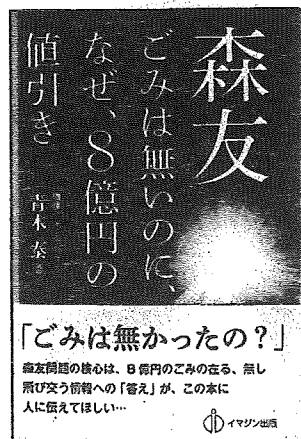 森友
ごみは無いのに、
なぜ、8億円の
値引き
青木泰
「ごみは無かったの？」
森友問題の核心は、8億円のごみの在る、無し
飛び交う情報への「答え」が、この本に
人に伝えてほしい…
イマジン出版